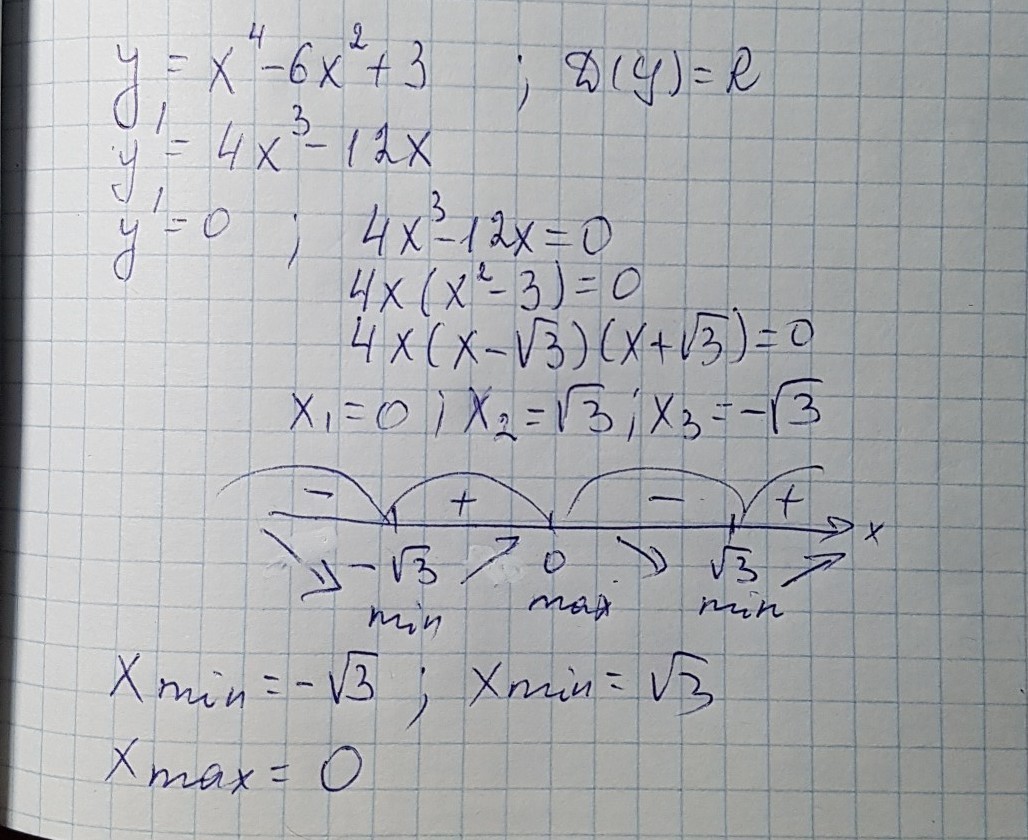 y = x⁴ - 6x² + 3 ; D(y) = R
y' = 4x³ - 12x
y' = 0 ; 4x³ - 12x = 0
4x(x² - 3) = 0
4x(x - √3)(x + √3) = 0
x₁ = 0 ; x₂ = √3 ; x₃ = -√3
- + - +
-√3 0 √3 x
min max min
xmin = -√3 ; xmin = √3
xmax = 0